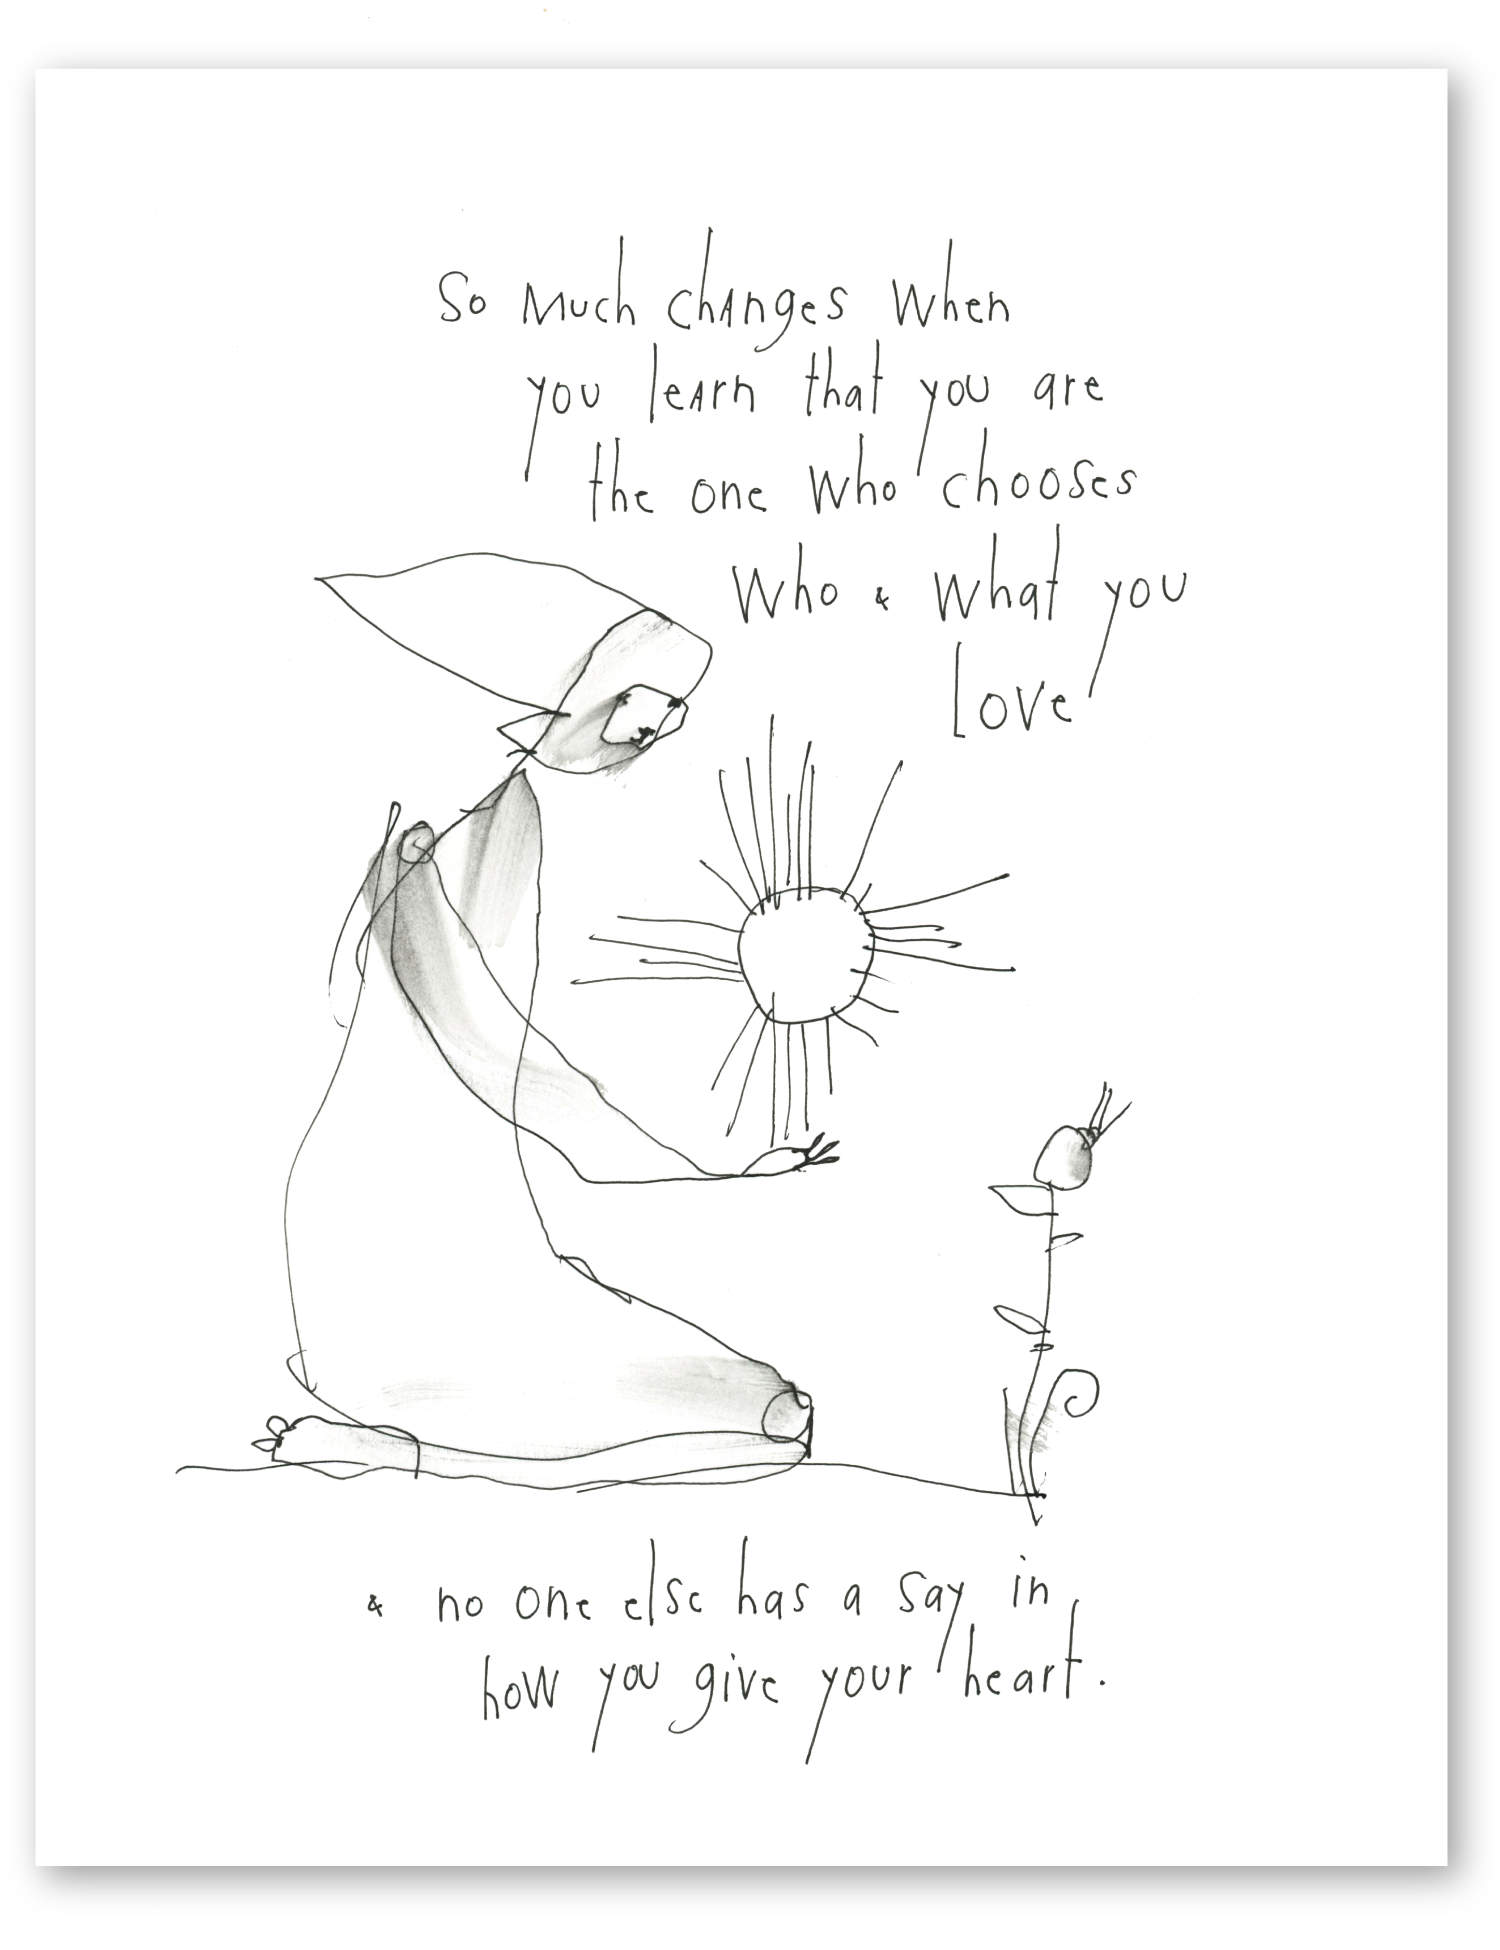 So Much changes when
you learn that you are
the one who chooses
who & what you
Love
& no one else has a say in
how you give your heart.